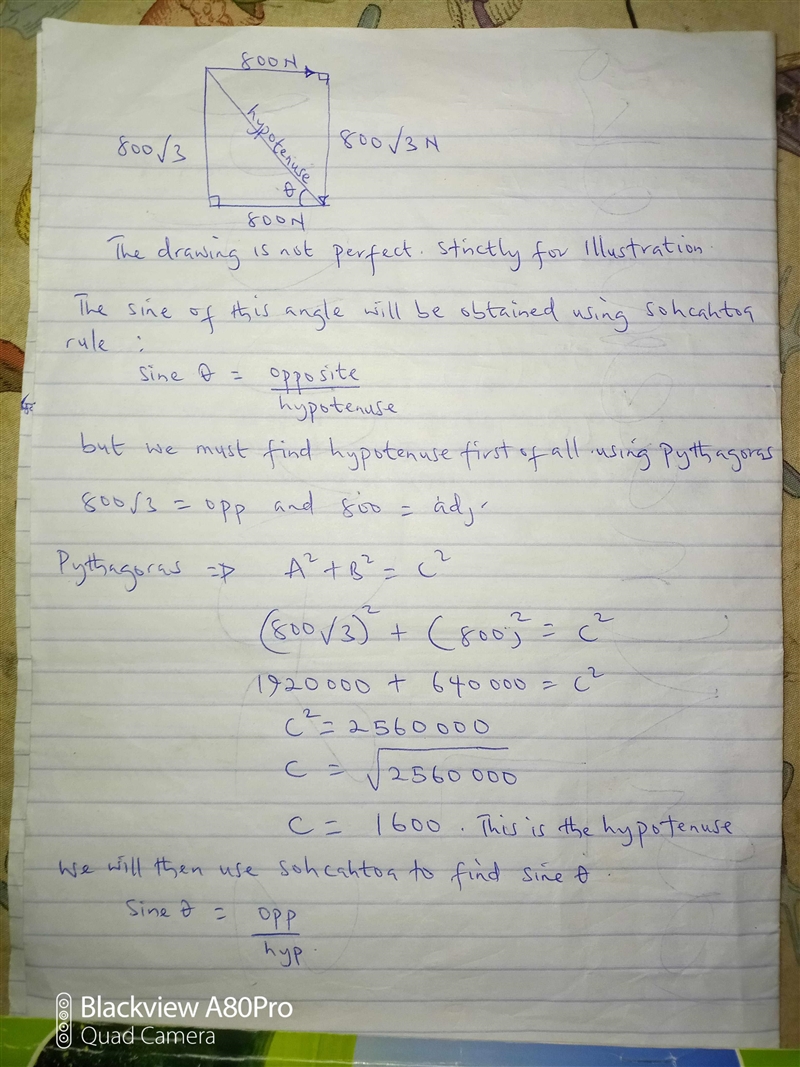 800N
hypotenuse
800√3
800√3 N
θ
800N
The drawing is not perfect. Strictly for Illustration.
The sine of this angle will be obtained using sohcahtoa
rule :
Sine θ = opposite
hypotenuse
but we must find hypotenuse first of all using Pythagoras
800√3 = opp and 800 = adj.
Pythagoras => A² + B² = C²
(800√3)² + (800)² = C²
1920000 + 640000 = C²
C² = 2560000
C = √2560000
C = 1600. This is the hypotenuse
We will then use sohcahtoa to find sine θ.
Sine θ = opp
hyp.
Blackview A80Pro
Quad Camera